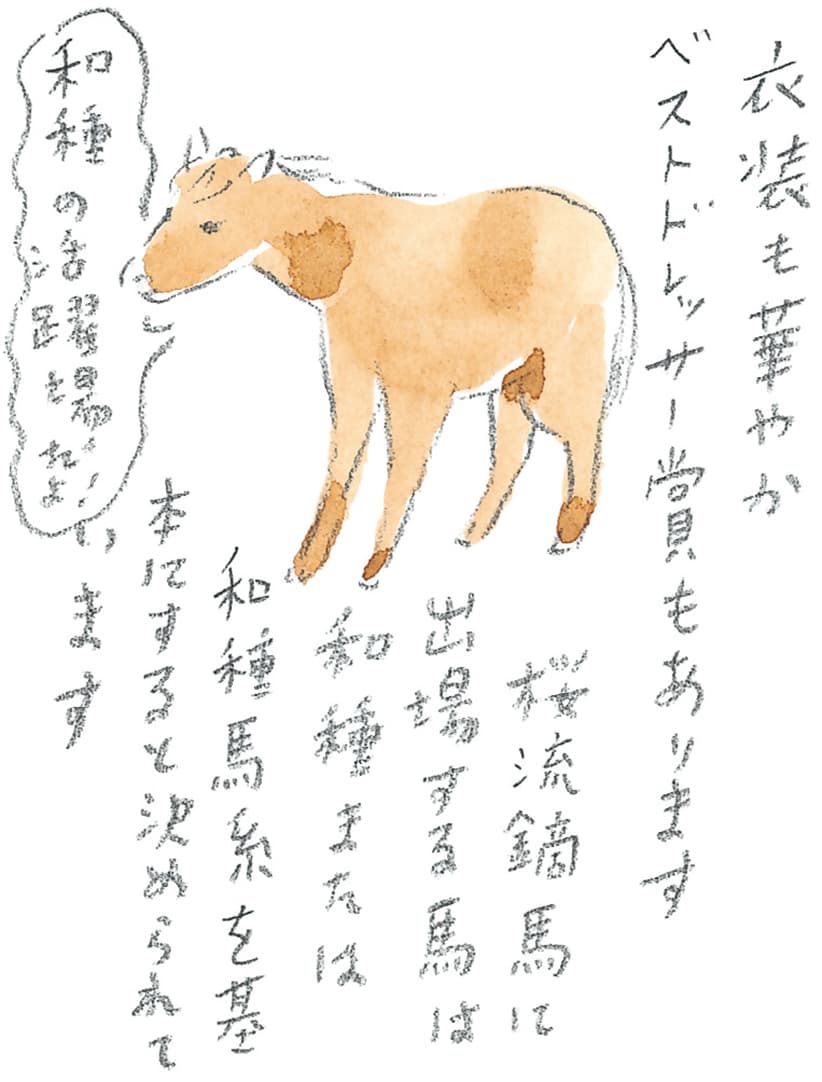 衣装も華やか
ベストドレッサー賞もあります
桜流鏑馬に
出場する馬は
和種または
和種馬系を基
本にすると決められて
います
和種の活躍場だよ!